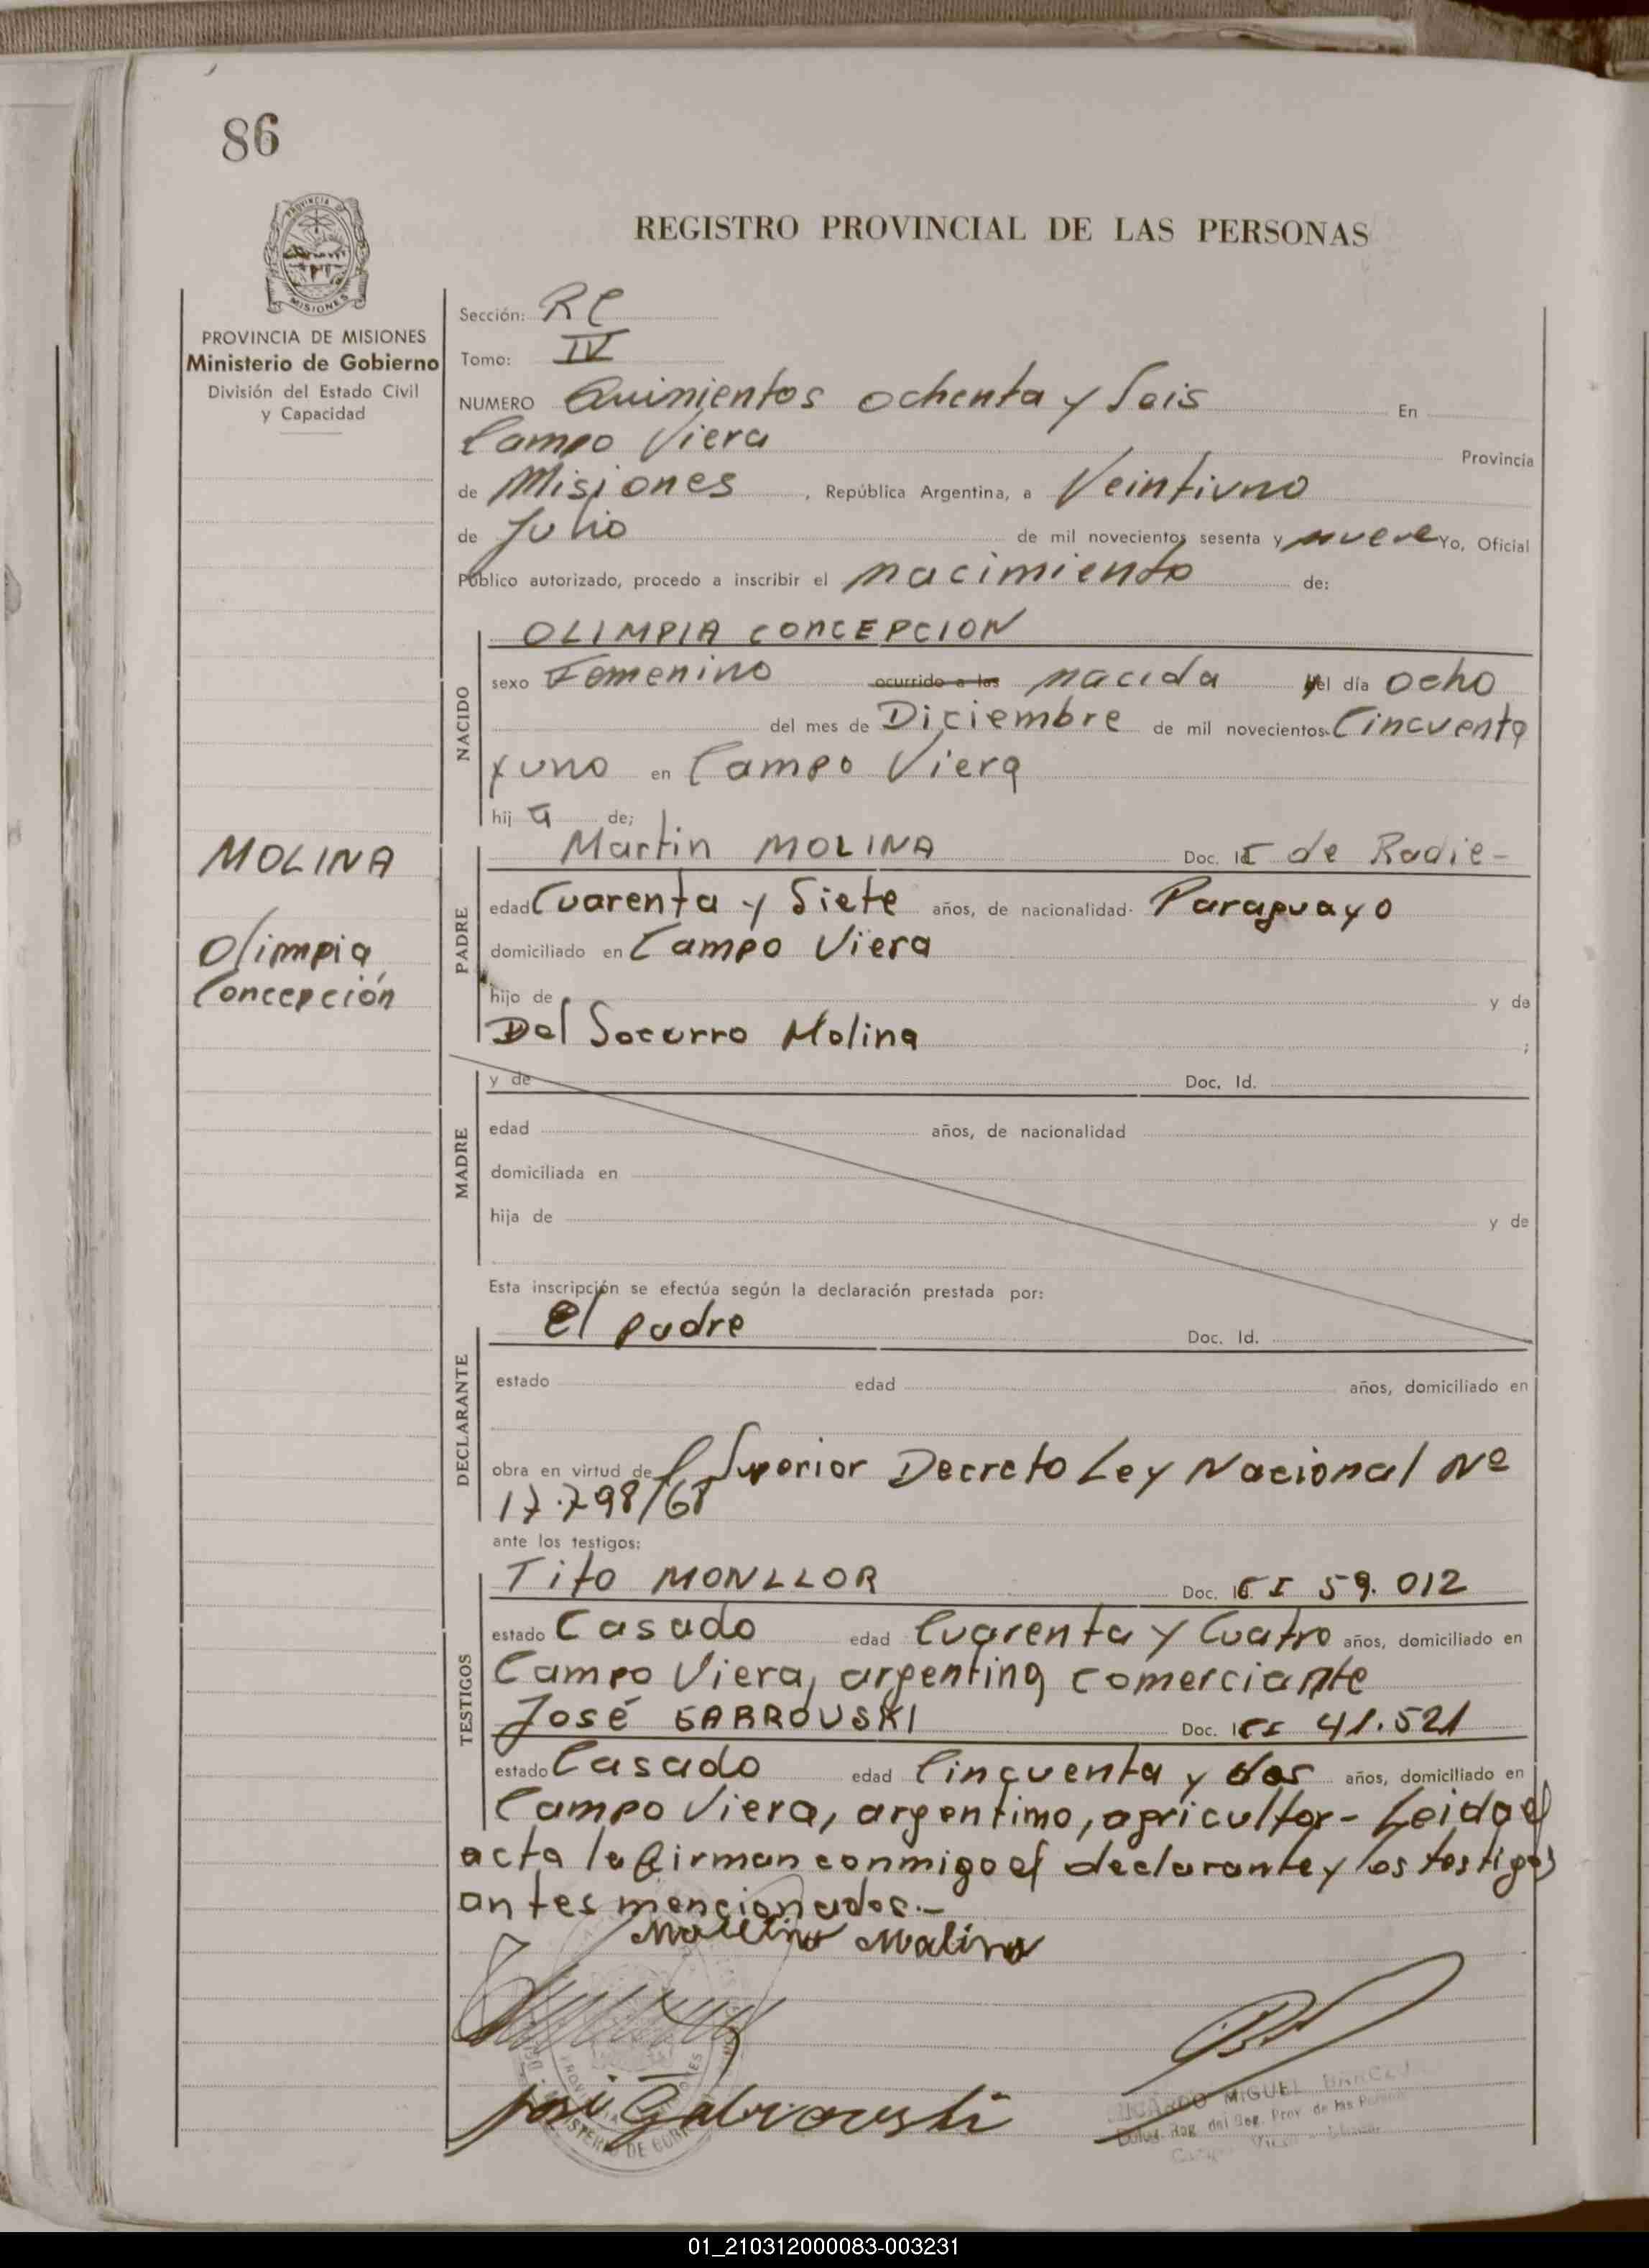 86
REGISTRO PROVINCIAL DE LAS PERSONAS
PROVINCIA DE MISIONES
Ministerio de Gobierno
División del Estado Civil
y Capacidad
MOLINA
Olimpia
Concepción
Sección: RC
Tomo: IV
NUMERO Quinientos ochenta y Seis En
Campo Viera Provincia
de Misiones , República Argentina, a Veintiuno
de Julio de mil novecientos sesenta y nueve Yo, Oficial
Público autorizado, procedo a inscribir el nacimiento de:
NACIDO
OLIMPIA CONCEPCION
sexo Femenino ocurrido a las nacida el día ocho
del mes de Diciembre de mil novecientos Cincuenta
y uno en Campo Viera
hij a de;
PADRE
Martin MOLINA Doc. Id de Radic-
edad Cuarenta y Siete años, de nacionalidad Paraguayo
domiciliado en Campo Viera
hijo de y de
Del Socorro Molina ;
MADRE
y de Doc. Id.
edad años, de nacionalidad
domiciliada en
hija de y de
Esta inscripción se efectúa según la declaración prestada por:
DECLARANTE
el padre Doc. Id.
estado edad años, domiciliado en
obra en virtud de Superior Decreto Ley Nacional Nº
17.798/68
ante los testigos:
TESTIGOS
Tito MONLLOR Doc. CI 59.012
estado Casado edad Cuarenta y Cuatro años, domiciliado en
Campo Viera, argentino, comerciante
José GABROUSKI Doc. CI 41.521
estado Casado edad Cincuenta y dos años, domiciliado en
Campo Viera, argentino, agricultor- Leida el
acta la firman conmigo el declarante y los testigos
antes mencionados.-
Molina
José Gabrouski
RICARDO MIGUEL
01_210312000083-003231